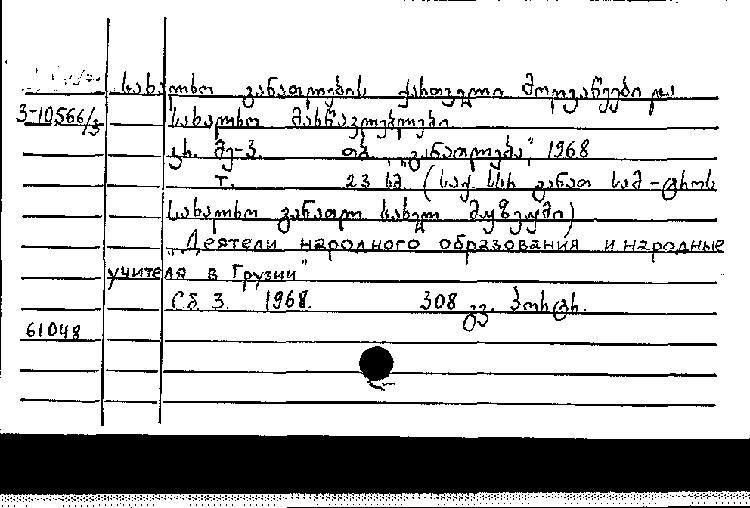 სახალხო განათლების ქართველი მოღვაწეები და
3-10566/3 სახალხო მასწავლებლები.
კრ. მე-3. თბ. „განათლება", 1968
т. 23 სმ. (საქ სსრ განათ სამ-ტროს
სახალხო განათლ სახელ მუზეუმი)
"Деятели народного образования и народные
учителя в Грузии"
Сб 3. 1968. 308 გვ. პორტრ.
61048